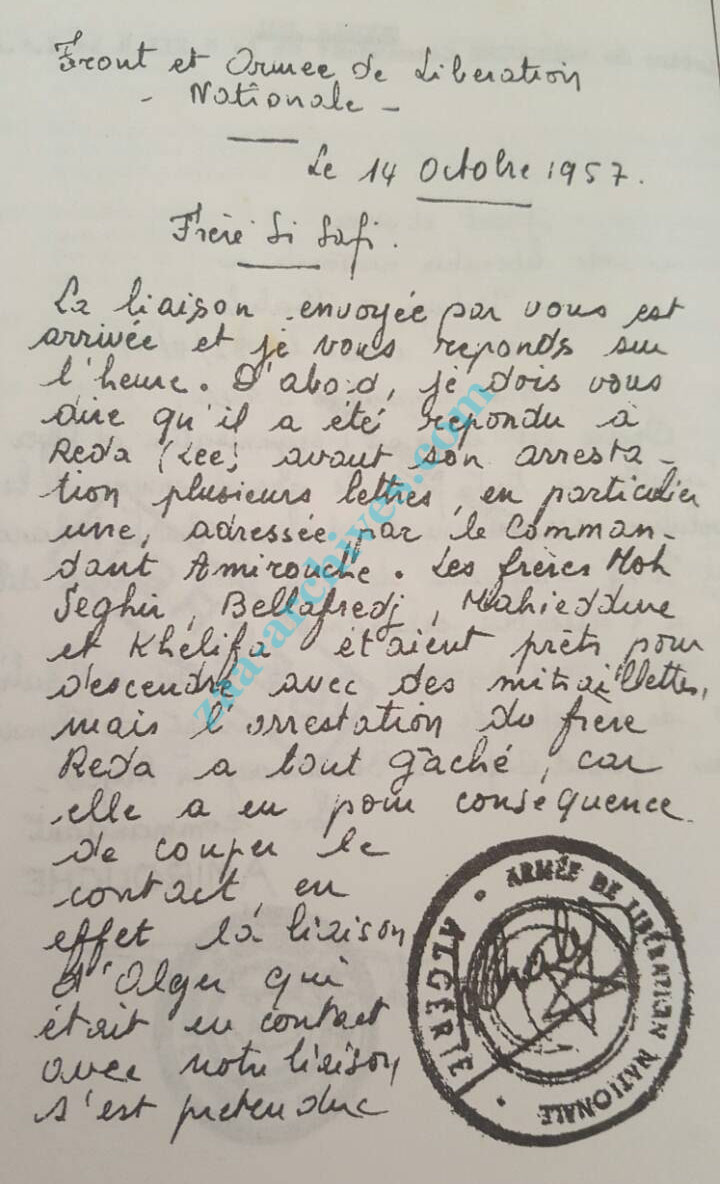 Front et Armée de Libération
- Nationale -
Le 14 Octobre 1957.
Frère Si Safi.
La liaison envoyée par vous est
arrivée et je vous reponds sur
l'heure. D'abord, je dois vous
dire qu'il a été repondu à
Reda (Lee) avant son arresta-
tion plusieurs lettres, en particulier
une, adressée par le Comman-
dant Amirouche. Les frères Moh
Seghir, Bellafredj, Mahieddine
et Khélifa étaient prêts pour
descendre avec des mitraillettes,
mais l'arrestation du frère
Reda a tout gâché, car
elle a eu pour conséquence
de couper le
contact, en
effet la liaison
d'Alger qui
était en contact
avec notre liaison
s'est pretendue
ALGERIE • ARMÉE DE LIBÉRATION NATIONALE •
zna-archives.com